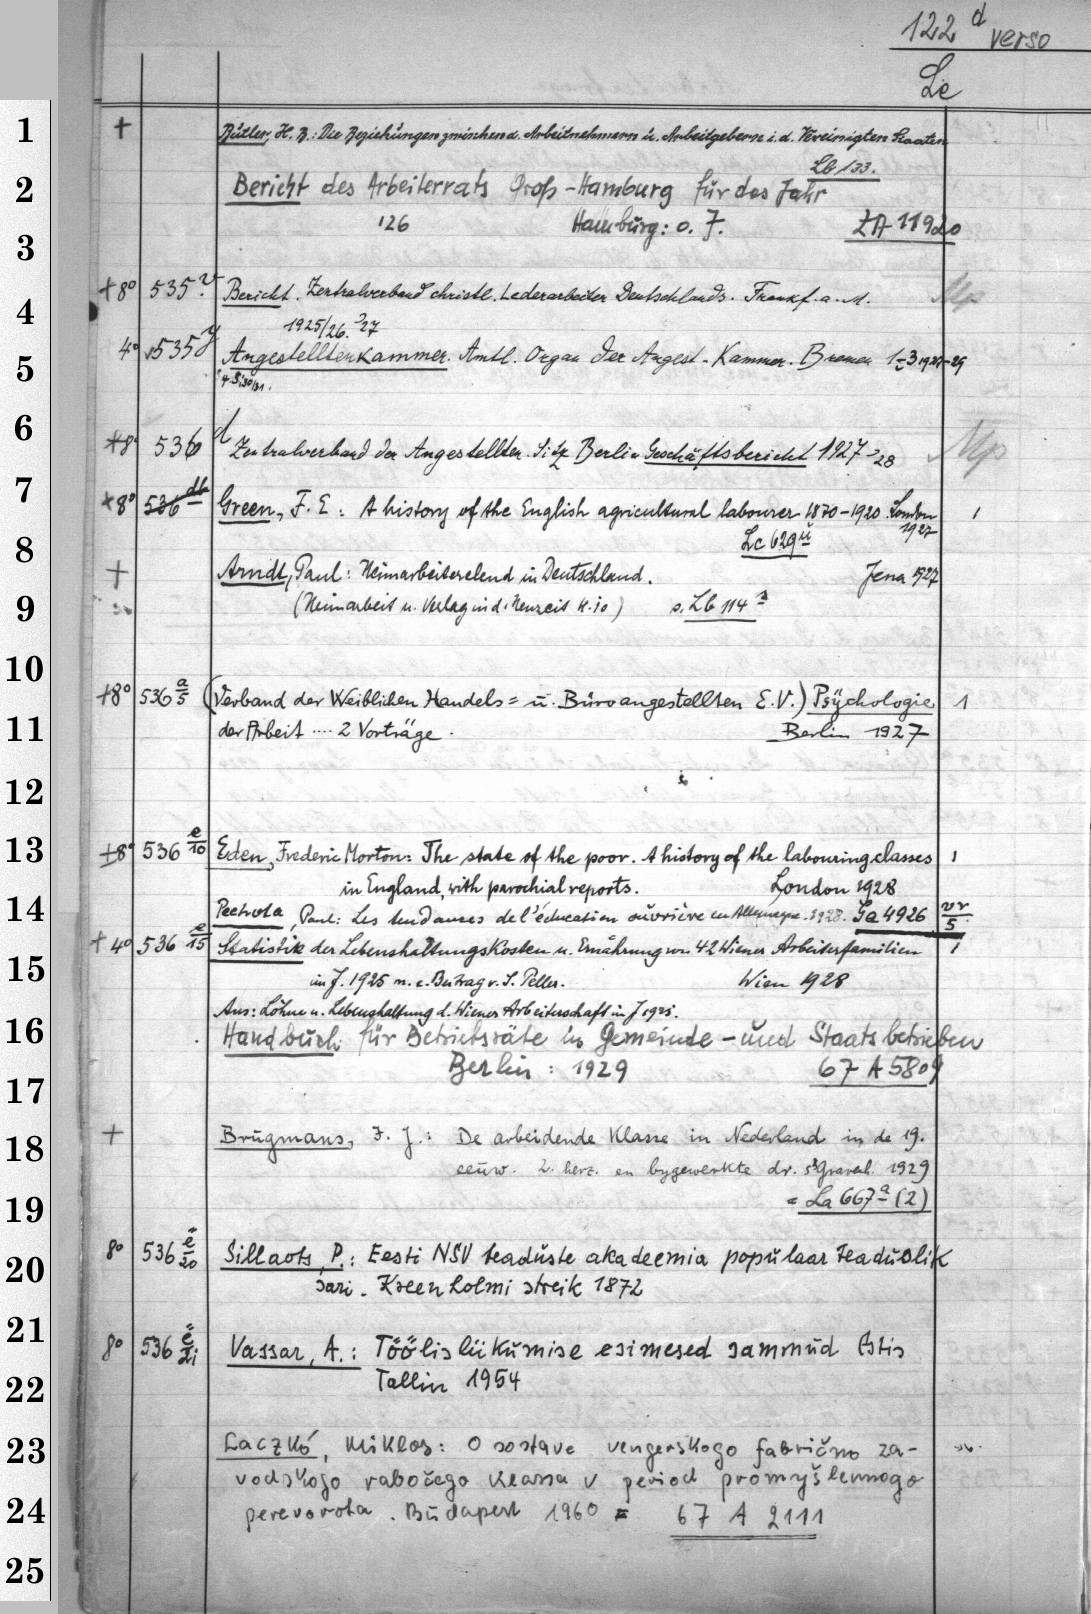 122 d verso
Le
1 + Bütler, H. B.: Die Beziehungen zwischen d. Arbeitnehmern u. Arbeitgebern i. d. Vereinigten Staaten
Lb 133.
2 Bericht des Arbeiterrats Groß-Hamburg für das Jahr
3 '26 Hamburg: o. J. ZA 11920
4 +8° 535 Bericht. Zentralverband christl. Lederarbeiter Deutschlands. Frankf. a. M. Mp
1925/26. '27
5 4° 535 y Angestelltenkammer. Amtl. Organ der Angest.-Kammer. Bremen 1-3 1921-29
4-5: 30/31.
6 +8 536 d Zentralverband der Angestellten. Sitz Berlin Geschäftsbericht 1927-28 Mp
7 +8° 536 db Green, F. E.: A history of the English agricultural labourer 1870-1920. London 1927 1
8 Lc 629 ü
+ Arndt, Paul: Heimarbeiterelend in Deutschland. Jena 1927
9 (Heimarbeit u. Verlag in d. Neuzeit H. 10) s. Lb 114 s
10
+8° 536 a/5 (Verband der Weiblichen Handels= u. Büroangestellten E.V.) Psychologie 1
11 der Arbeit .... 2 Vorträge. Berlin 1927
12
13 +8° 536 e/10 Eden, Frederic Morton: The state of the poor. A history of the labouring classes 1
in England, with parochial reports. London 1928
14 Paul: Les tendances de l'éducation ouvrière en Allemagne. 1928. Ga 4926 vr/5
+ 4° 536 e/15 Statistik der Lebenshaltungskosten u. Ernährung von 42 Wiener Arbeiterfamilien 1
15 im J. 1925 m. e. Beitrag v. S. Peller. Wien 1928
Aus: Löhne u. Lebenshaltung d. Wiener Arbeiterschaft im J 1925.
16 Handbuch für Betriebsräte in Gemeinde-und Staatsbetrieben
17 Berlin: 1929 67 A 5809
18 + Brugmans, I. J.: De arbeidende Klasse in Nederland in de 19.
eeuw. 2. herz. en bygewerkte dr. s'Gravenh. 1929
19 = La 667 a (2)
20 8° 536 e/20 Sillaots, P.: Eesti NSV teaduste akadeemia populaar teaduslik
sari. Kreenholmi streik 1872
21 8° 536 e/21 Vassar, A.: Töölisliikumise esimesed sammud Estis
22 Tallin 1954
23 Laczkó, Miklos: O sostave vengerskogo fabrično za-
vodskogo rabočego klassa v period promyšlennogo
24 perevorota. Budapest 1960 = 67 A 2111
25